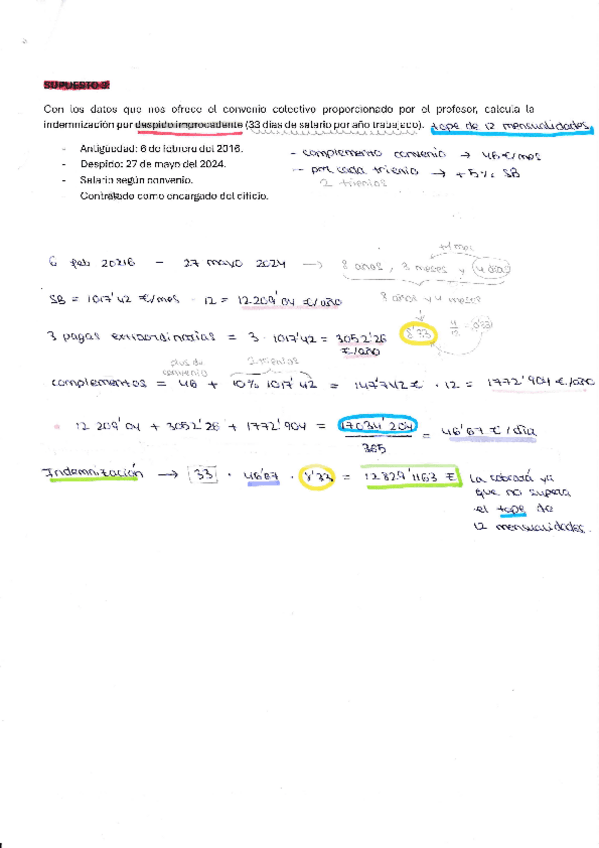 SUPUESTO 3:
Con los datos que nos ofrece el convenio colectivo proporcionado por el profesor, calcula la
indemnización por despido improcedente (33 días de salario por año trabajado). tope de 12 mensualidades.
- Antigüedad: 6 de febrero del 2016.
- Despido: 27 de mayo del 2024.
- Salario según convenio.
- Contratado como encargado del oficio.
- complemento convenio → 46 €/mes
- por cada trienio → + 5% SB
2 trienios
+1 mes
6 feb 2016 - 27 mayo 2024 → 8 años, 3 meses y
8 años y 4 meses
SB = 1017'42 €/mes · 12 = 12.209'04 €/año
3 pagas extraordinarias = 3 · 1017'42 = 3052'26 €/año
8'33
4/12 = 0'33
plus de convenio
2 trienios
complementos = 46 + 10% 1017'42 = 147'742 € · 12 = 1772'904 €/año
12 209'04 + 3052'26 + 1772'904 = 17034'204 / 365 = 46'67 €/día
Indemnización → 33 · 46'67 · 8'33 = 12829'1163 €
la cobrará ya
que no supera
el tope de
12 mensualidades.